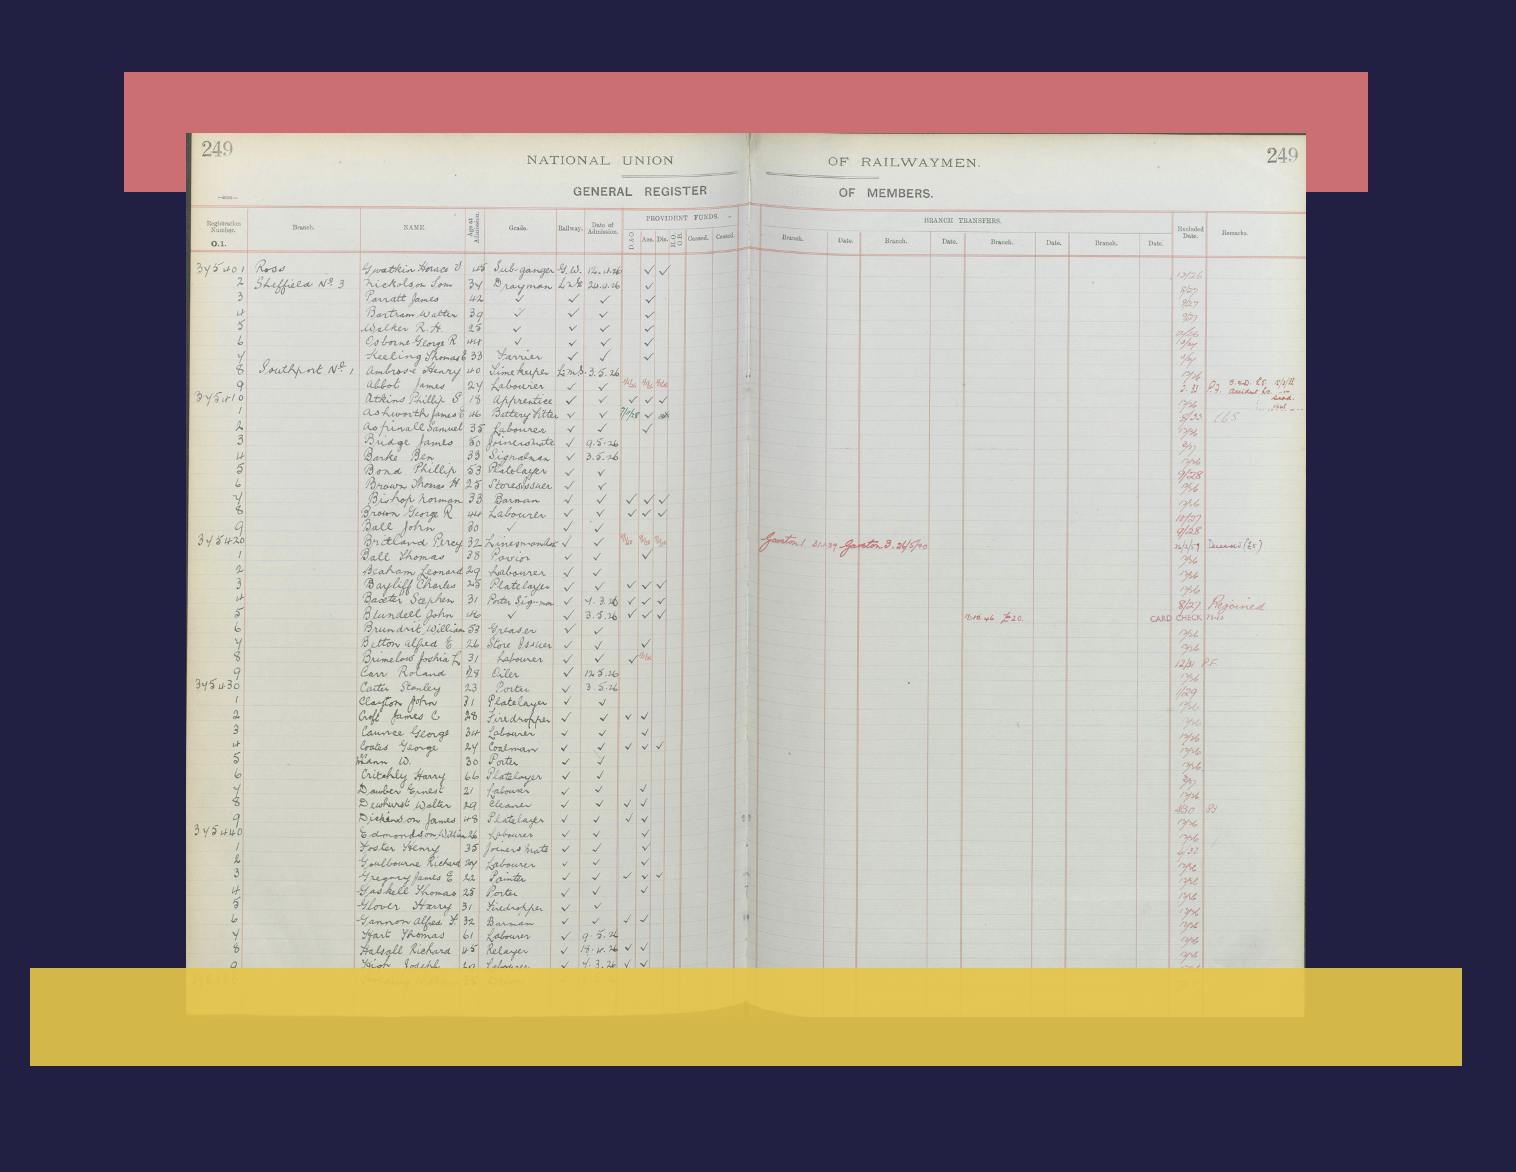 249
249
NATIONAL UNION OF RAILWAYMEN.
GENERAL REGISTER OF MEMBERS.
Registration Number. Branch. NAME. Age at Admission. Grade. Railway. Date of Admission. PROVIDENT FUNDS. BRANCH TRANSFERS. Excluded Date. Remarks.
O.1. D. & O. Acc. Dis. H.O. O.B. Ceased. Ceased. Branch. Date. Branch. Date. Branch. Date. Branch. Date.
345401 Ross Gwatkin Horace V 45 Sub ganger G.W. 12.4.26 ✓ ✓ 12/26
2 Sheffield No. 3 Nickolson Tom 34 Drayman L.N.E 24.4.26 ✓ 9/27
3 Parratt James 42 ✓ ✓ ✓ ✓ 9/27
4 Bartram Walter 39 ✓ ✓ ✓ ✓ 9/27
5 Walker R. H. 25 ✓ ✓ ✓ ✓
6 Osborne George R 44 ✓ ✓ ✓ ✓
7 Keeling Thomas 33 Farrier ✓ ✓ ✓
8 Southport No. 1 Ambrose Henry 40 Timekeeper L.M.S. 3.5.26 12/26
9 Abbot James 24 Labourer ✓ ✓
345410 Atkins Phillip S 18 Apprentice ✓ ✓ ✓ ✓ ✓ 12/26
1 Ashworth James E 46 Battery Fitter ✓ ✓ 165
2 Aspinall Samuel 35 Labourer ✓ ✓ ✓ 12/26
3 Bridge James 50 Joiners mate ✓ 9.5.26
4 Barke Ben 33 Signalman ✓ 3.5.26 12/26
5 Bond Phillip 53 Platelayer ✓ ✓ 9/28
6 Brown Thomas H 25 Stores Issuer ✓ ✓ 12/26
7 Bishop Norman 33 Barman ✓ ✓ ✓ ✓ ✓ 12/26
8 Brown George R 44 Labourer ✓ ✓ ✓ ✓ ✓ 10/27
9 Ball John 30 ✓ ✓ ✓ 9/28
345420 Britland Percy 32 Linesman ✓ ✓ Garston 1. Garston 3. 26/5/40 Deceased (£5)
1 Ball Thomas 38 Pavior ✓ ✓ ✓ 12/26
2 Beaham Leonard 29 Labourer ✓ ✓ 12/26
3 Bayliff Charles 25 Platelayer ✓ ✓ ✓ ✓ ✓ 12/26
4 Baxter Stephen 31 Porter Sig-man ✓ 4.3.26 ✓ ✓ ✓ 8/27 Rejoined
5 Blundell John 46 ✓ ✓ 3.5.26 ✓ ✓ ✓ £20 CARD CHECK
6 Brundrit William 53 Greaser ✓ ✓ 12/26
7 Bitton Alfred E 26 Store Issuer ✓ ✓ ✓ 12/26
8 Brimelow Joshia 31 Labourer ✓ ✓ ✓ 12/31 P.F.
9 Carr Roland 28 Oiler ✓ 12.5.26 12/26
345430 Carter Stanley 23 Porter ✓ 3.5.26 1/29
1 Clayton John 31 Platelayer ✓ ✓ 12/26
2 Croft James C 28 Firedropper ✓ ✓ ✓ ✓ 12/26
3 Caunce George 34 Labourer ✓ ✓ ✓ 12/26
4 Coates George 24 Coalman ✓ ✓ ✓ ✓ ✓ 12/26
5 Mann W. 30 Porter ✓ ✓ 12/26
6 Critchly Harry 66 Platelayer ✓ ✓
7 Dauber Ernest 21 Labourer ✓ ✓ ✓ 12/26
8 Dewhurst Walter 29 Cleaner ✓ ✓ ✓ ✓
9 Dickenson James 48 Platelayer ✓ ✓ ✓ ✓ 12/26
345440 Edmondson William 26 Labourer ✓ ✓ ✓ 12/26
1 Foster Henry 35 Joiners Mate ✓ ✓ ✓
2 Goulbourne Richard 24 Labourer ✓ ✓ ✓ 12/26
3 Gregory James E 22 Painter ✓ ✓ ✓ ✓ ✓ 12/26
4 Gaskell Thomas 25 Porter ✓ ✓ ✓ 12/26
5 Glover Harry 31 Firedropper ✓ ✓ 12/26
6 Gannon Alfred F. 32 Barman ✓ ✓ ✓ ✓ 12/26
7 Hart Thomas 61 Labourer ✓ 9.5.26 12/26
8 Halsall Richard 45 Relayer ✓ 18.4.26 ✓ ✓ 12/26
9 High Joseph Labourer ✓ 4.3.26 ✓ ✓